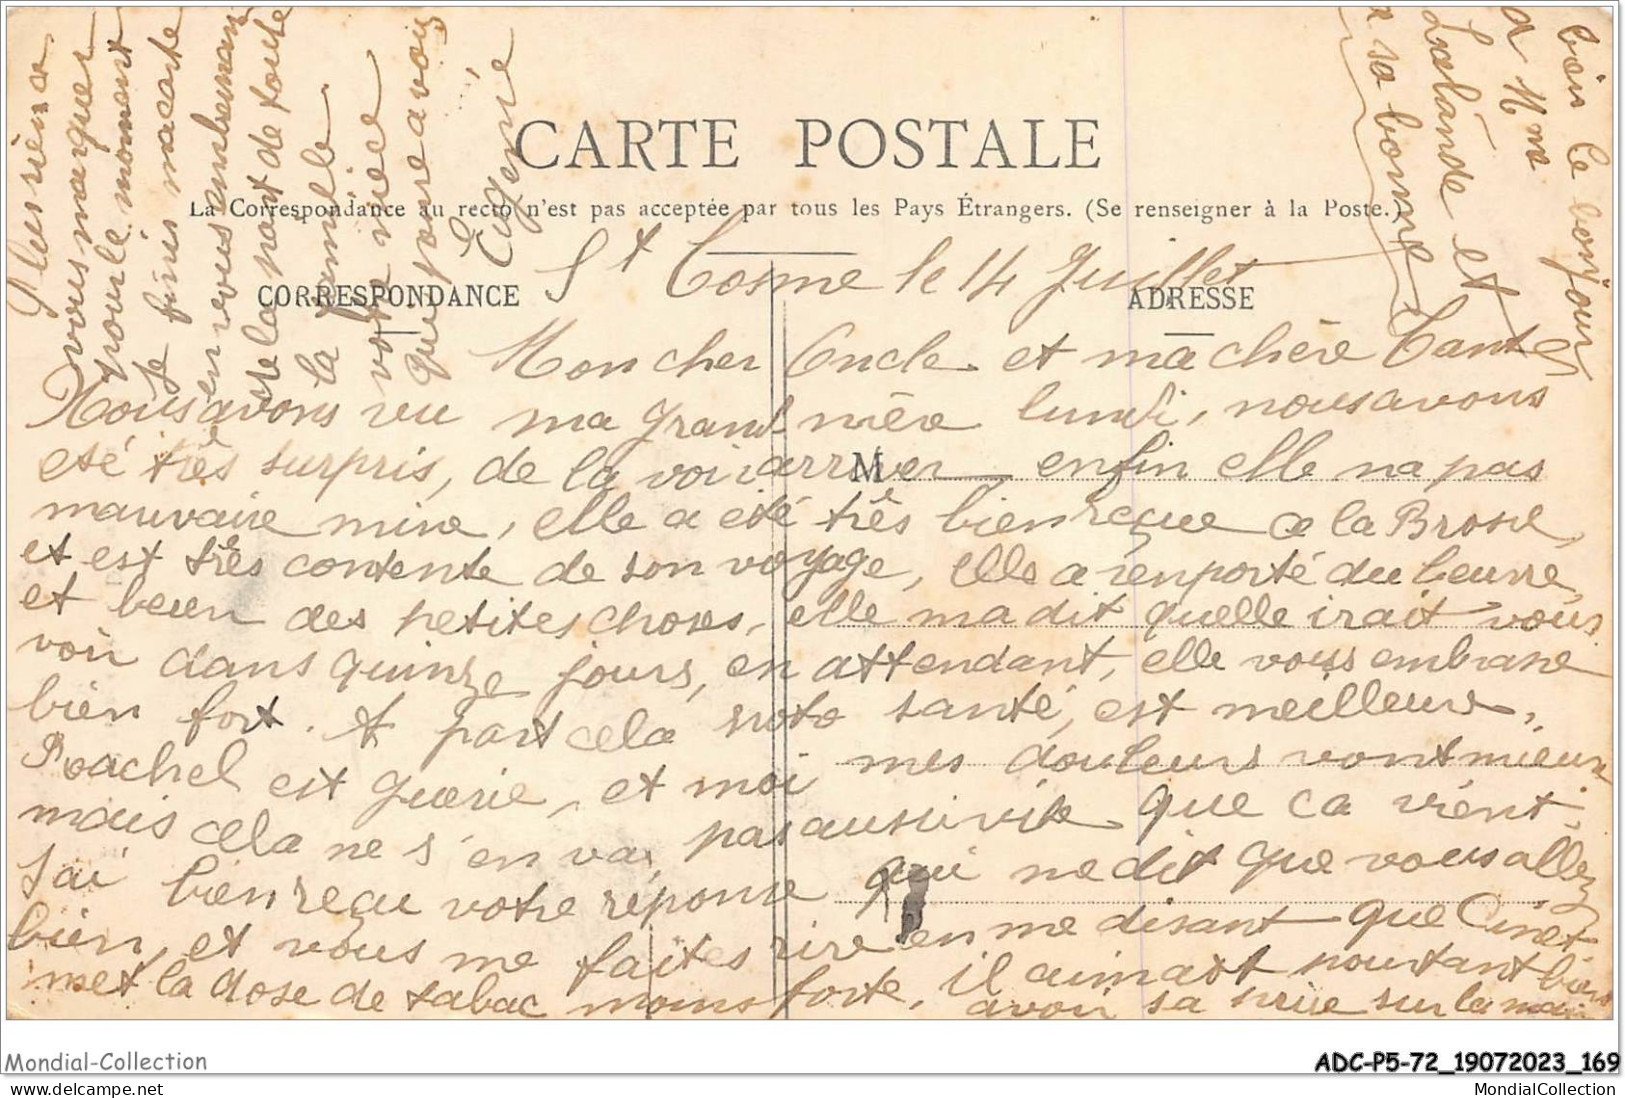 CARTE POSTALE
La Correspondance au recto n'est pas acceptée par tous les Pays Étrangers. (Se renseigner à la Poste.)
CORRESPONDANCE
ADRESSE
M
St Cosme le 14 Juillet
Mon cher Oncle et ma chère Tante
Nous avons vu ma Grand mère lundi, nous avons
eté très surpris, de la voir arriver enfin elle na pas
mauvaise mine, elle a eté très bien reçue a la Brosse,
et est très contente de son voyage, elle a renporté du beurre,
et beuen des petites choses, elle ma dit quelle irait vous
voir dans quinze jours, en attendant, elle vous embrasse
bien fort. A part cela noto santé, est meilleure,
Roachel est guerie, et moi mes douleurs vont mieux
mais cela ne s'en va, pas aussi vite que ca vient,
J'ai bien reçu votre reponse qui me dit que vous allez
bien, et vous me faites rire en me disant que Cinet
met la dose de tabac moins forte, il aimait pourtant bien
avoir sa prise sur la main
Plus rien a
vous marquer
pour le moment
Je finis ma carte
en vous embrassant
de la part de toute
la famille
votre nièce
qui pense a vous
Eugenie
bien le bonjour
a Mme
Lalande et
a sa bonne
Mondial-Collection
ADC-P5-72_19072023_169
www.delcampe.net
MondialCollection